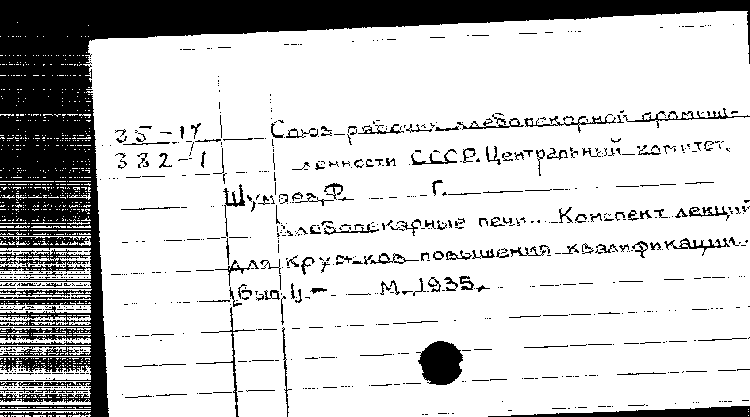 35-17
382-1
Союз рабочих хлебопекарной промыш-
ленности СССР. Центральный комитет.
Шумаев, Ф. Г.
Хлебопекарные печи.. Конспект лекций
для кружков повышения квалификации.
[Вып.1].- М., 1935.